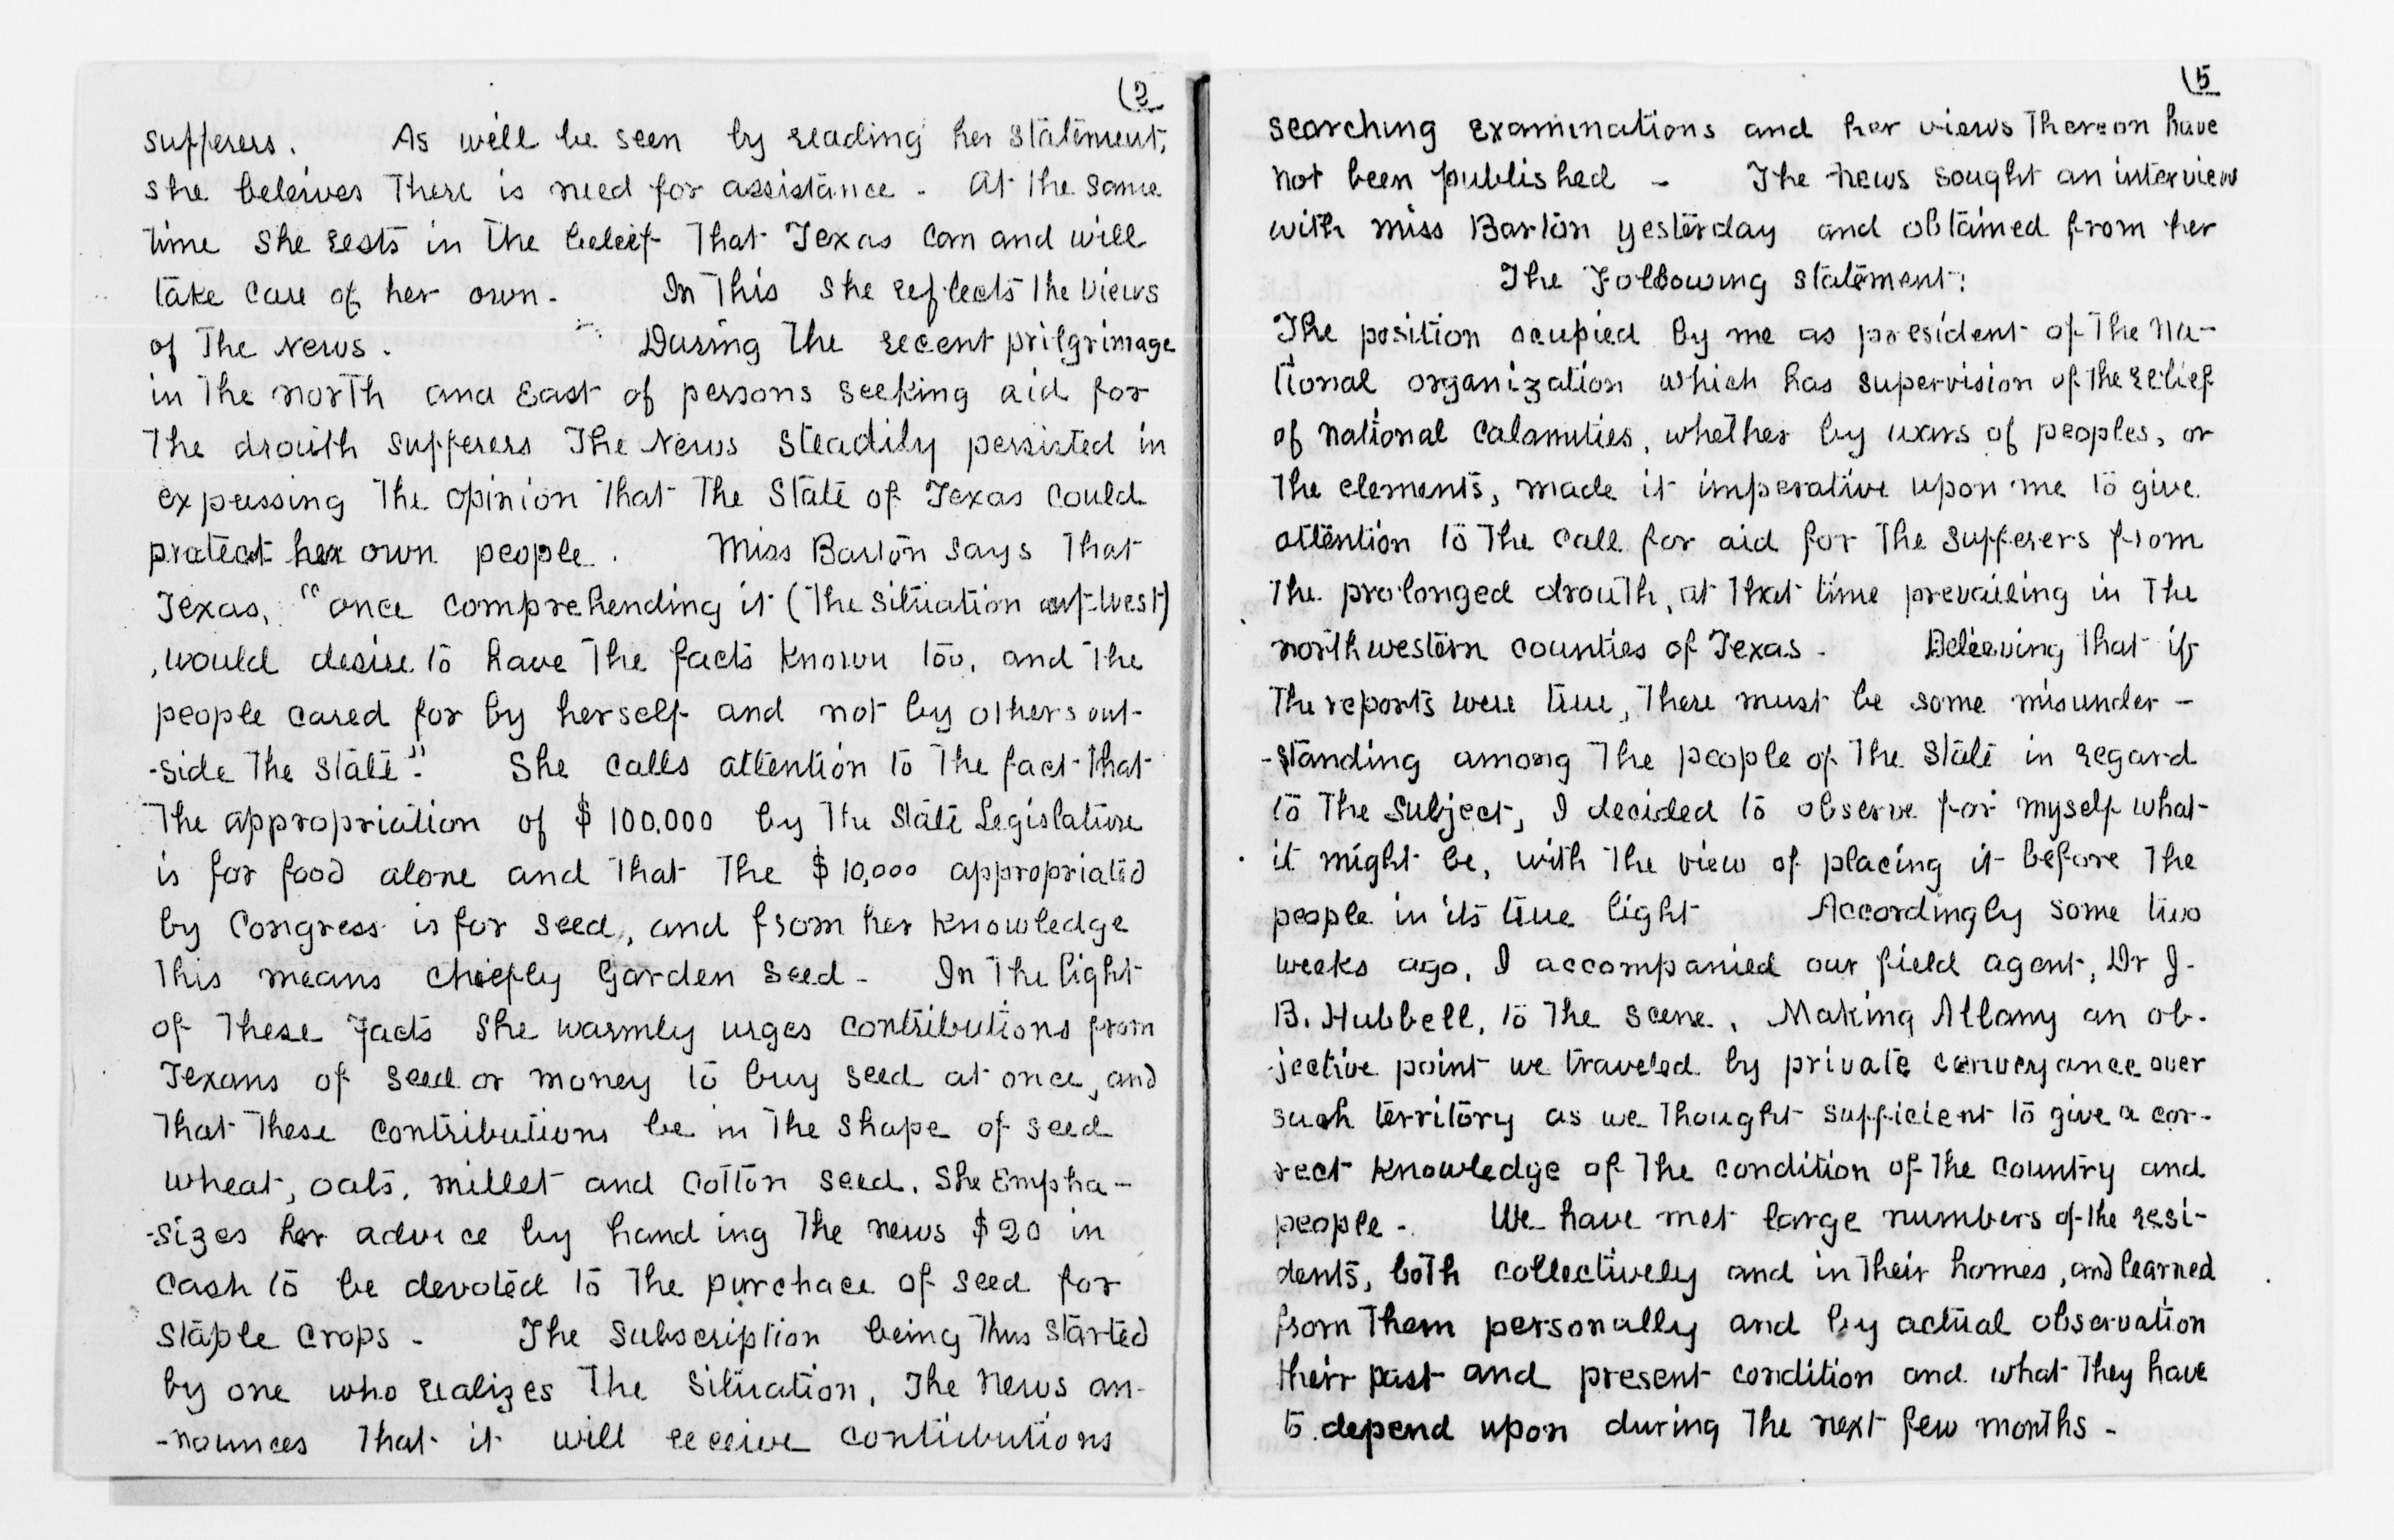 (2
sufferers. As will be seen by reading her statement,
she beleives there is need for assistance - At the same
time she rests in the beleif that Texas can and will
take care of her own - In this she reflects the views
of The News. During the recent prilgrimage
in the north and East of persons seeking aid for
the drouth sufferers The News steadily persisted in
expressing the opinion that the State of Texas could
protect her own people. Miss Barton says that
Texas, "once comprehending it (the situation west)
, would desire to have the facts known too, and the
people cared for by herself and not by others out-
-side the state". She calls attention to the fact that
the appropriation of $100.000 by the State Legislature
is for food alone and that the $10,000 appropriated
by Congress is for seed, and from her knowledge
this means cheifly garden seed - In the light
of these facts she warmly urges contributions from
Texans of seed or money to buy seed at once, and
that these contributions be in the shape of seed
wheat, oats, millet and cotton seed. She Empha-
-sizes her advice by handing the news $20 in
cash to be devoted to the purchace of seed for
staple crops - The Subscription being thus started
by one who realizes the situation, The News an-
-nounces that it will receive contributions
(5
searching examinations and her views thereon have
not been published - The news sought an interview
with miss Barton yesterday and obtained from her
The Following statement:
The position ocupied by me as president of the Na-
tional organization which has supervision of the relief
of national calamities, whether by wars of peoples, or
the elements, made it imperative upon me to give
attention to the call for aid for the sufferers from
the prolonged drouth, at that time prevailing in the
northwestern counties of Texas - Beleeving that if
the reports were true, there must be some misunder-
-standing among the people of the State in regard
to the subject, I decided to observe for myself what
it might be, with the view of placing it before the
people in its true light Accordingly some two
weeks ago, I accompanied our field agent, Dr J.
B. Hubbell, to the scene. Making Albany an ob-
-jective point we traveled by private conveyance over
such territory as we thought sufficient to give a cor-
rect knowledge of the condition of the country and
people - We have met large numbers of the resi-
dents, both collectively and in their homes, and learned
from them personally and by actual observation
their past and present condition and what they have
to depend upon during the next few months -